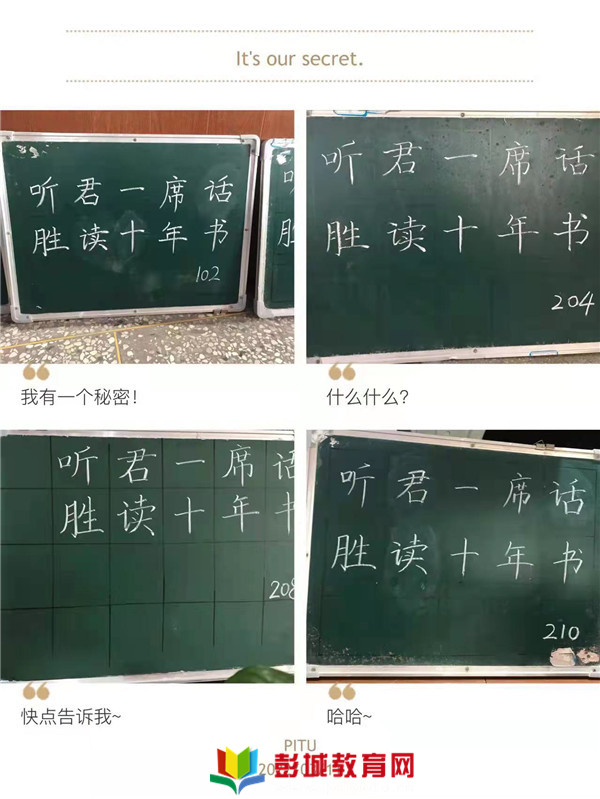 It's our secret.
听君一席话
胜读十年书
102
听
胜
听君一席话
胜读十年书
204
我有一个秘密!
什么什么?
听君一席话
胜读十年书
208
听君一席话
胜读十年书
210
快点告诉我~
哈哈~
PITU
彭城教育网